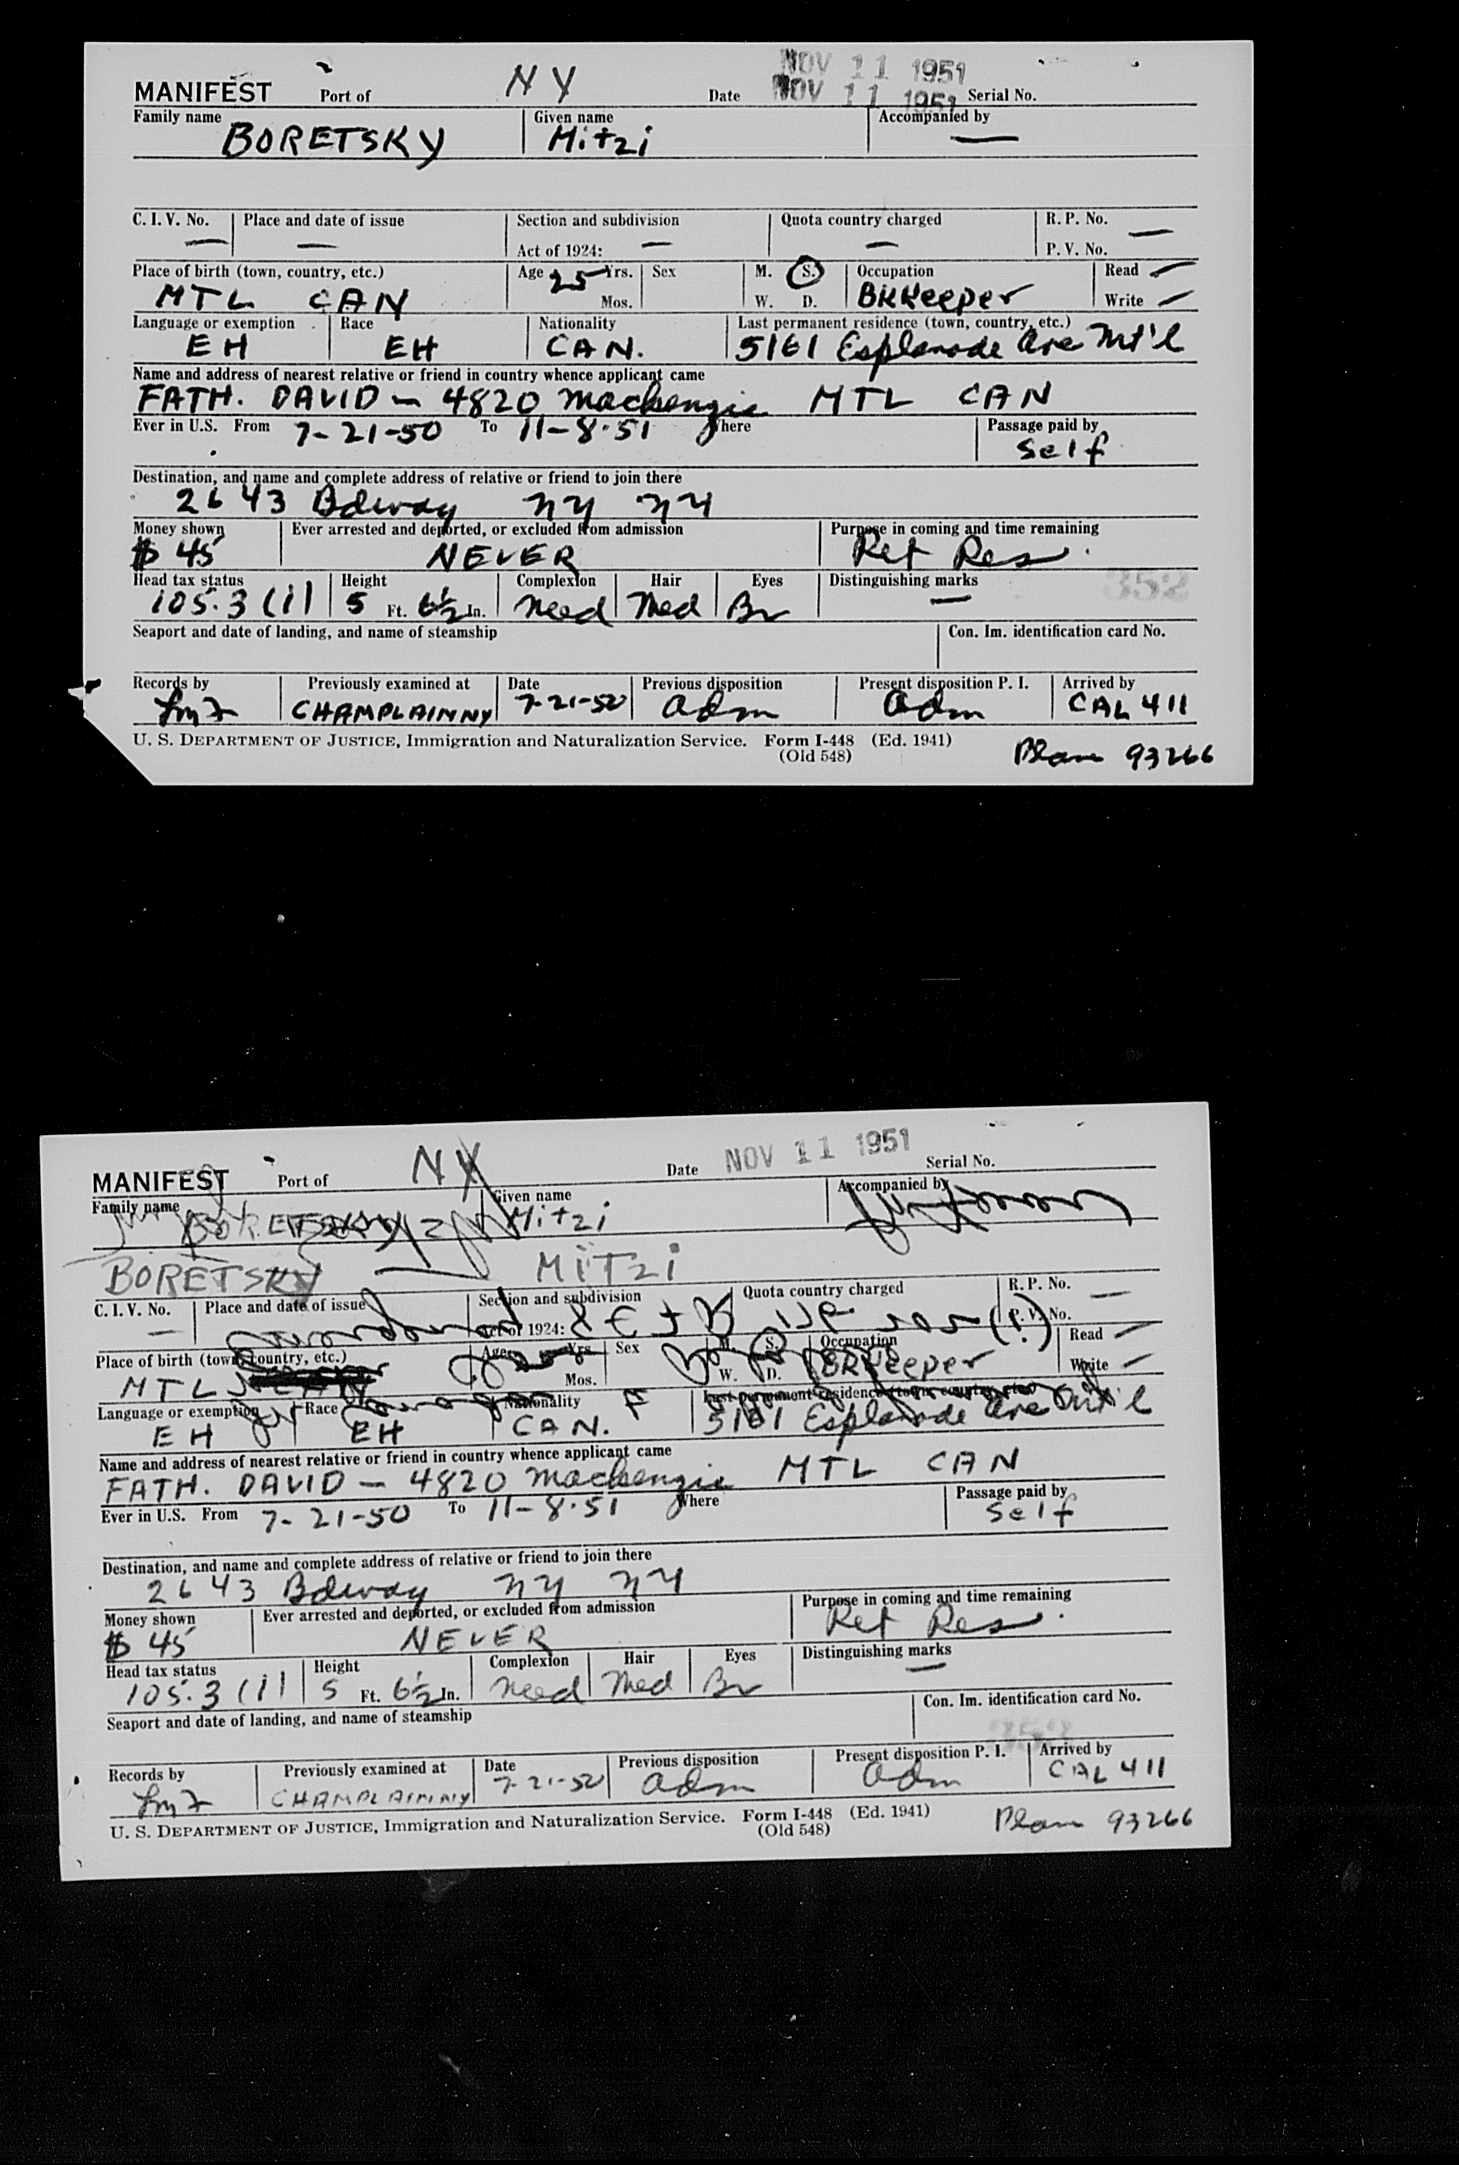 NOV 11 1951
MANIFEST Port of NY Date NOV 11 1951 Serial No.
Family name Given name Accompanied by
BORETSKY Mitzi —
C. I. V. No. Place and date of issue Section and subdivision Quota country charged R. P. No.
— — Act of 1924: — — P. V. No. —
Place of birth (town, country, etc.) Age 25 Yrs. Sex M. S. Occupation Read
MTL CAN Mos. W. D. BKKeeper Write
Language or exemption Race Nationality Last permanent residence (town, country, etc.)
EH EH CAN. 5161 Esplanade Ave Mt'l
Name and address of nearest relative or friend in country whence applicant came
FATH. DAVID — 4820 Mackenzie MTL CAN
Ever in U.S. From 7-21-50 To 11-8-51 Where Passage paid by
Self
Destination, and name and complete address of relative or friend to join there
2643 Bdway NY NY
Money shown Ever arrested and deported, or excluded from admission Purpose in coming and time remaining
$45 NEVER Ret Res.
Head tax status Height Complexion Hair Eyes Distinguishing marks 352
105.3(i) 5 Ft. 6½ In. Med Med Br —
Seaport and date of landing, and name of steamship Con. Im. identification card No.
Records by Previously examined at Date Previous disposition Present disposition P. I. Arrived by
CHAMPLAINNY 7-21-50 adm adm CAL 411
U. S. DEPARTMENT OF JUSTICE, Immigration and Naturalization Service. Form I-448 (Ed. 1941)
(Old 548) 93266
MANIFEST Port of NY Date NOV 11 1951 Serial No.
Family name Given name Accompanied by
BORETSKY Mitzi
BORETSKY MITZI
C. I. V. No. Place and date of issue Section and subdivision Quota country charged R. P. No. —
— Act of 1924: P. V. No.
Place of birth (town, country, etc.) Age 25 Yrs. Sex M. S. Occupation Read
MTL Mos. W. D. BKKeeper Write
Language or exemption Race Nationality F Last permanent residence (town, country, etc.)
EH EH CAN. 5161 Esplanade Ave Mt'l
Name and address of nearest relative or friend in country whence applicant came
FATH. DAVID — 4820 Mackenzie MTL CAN
Ever in U.S. From 7-21-50 To 11-8-51 Where Passage paid by
Self
Destination, and name and complete address of relative or friend to join there
2643 Bdway NY NY
Money shown Ever arrested and deported, or excluded from admission Purpose in coming and time remaining
$45 NEVER Ret Res.
Head tax status Height Complexion Hair Eyes Distinguishing marks
105.3(i) 5 Ft. 6½ In. Med Med Br —
Seaport and date of landing, and name of steamship Con. Im. identification card No.
352
Records by Previously examined at Date Previous disposition Present disposition P. I. Arrived by
CHAMPLAINNY 7-21-50 adm adm CAL 411
U. S. DEPARTMENT OF JUSTICE, Immigration and Naturalization Service. Form I-448 (Ed. 1941)
(Old 548) 93266